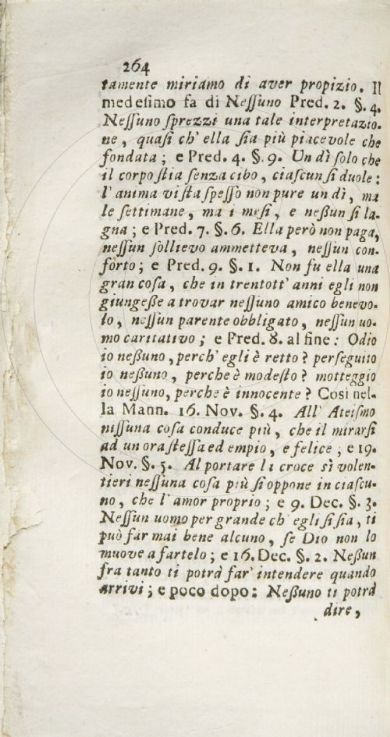 264
tamente miriamo di aver propizio. Il
medesimo fa di Nessuno Pred. 2. §. 4.
Nessuno sprezzi una tale interpretazio-
ne, quasi ch' ella sia più piacevole che
fondata; e Pred. 4. §. 9. Un dì solo che
il corpo stia senza cibo, ciascun si duole:
l' anima vi sta spesso non pure un dì, ma
le settimane, ma i mesi, e neßun si la-
gna; e Pred. 7. §. 6. Ella però non paga,
nessun sollievo ammetteva, nessun con-
forto; e Pred. 9. §. 1. Non fu ella una
gran cosa, che in trentott' anni egli non
giungeße a trovar nessuno amico benevo-
lo, nessun parente obbligato, nessun uo-
mo caritativo; e Pred. 8. al fine: Odio
io neßuno, perch' egli è retto? perseguito
io neßuno, perche è modesto? motteggio
io nessuno, perche è innocente? Così nel-
la Mann. 16. Nov. §. 4. All' Ateismo
nissuna cosa conduce più, che il mirarsi
ad un ora stessa ed empio, e felice, e 19.
Nov. §. 5. Al portare la croce sì volen-
tieri nessuna cosa più si oppone in ciascu-
no, che l' amor proprio; e 9. Dec. §. 3.
Nessun uomo per grande ch' egli si sia, ti
può far mai bene alcuno, se Dio non lo
muove a fartelo; e 16. Dec. §. 2. Neßun
fra tanto ti potrà far' intendere quando
arrivi; e poco dopo: Neßuno ti potrà
dire,